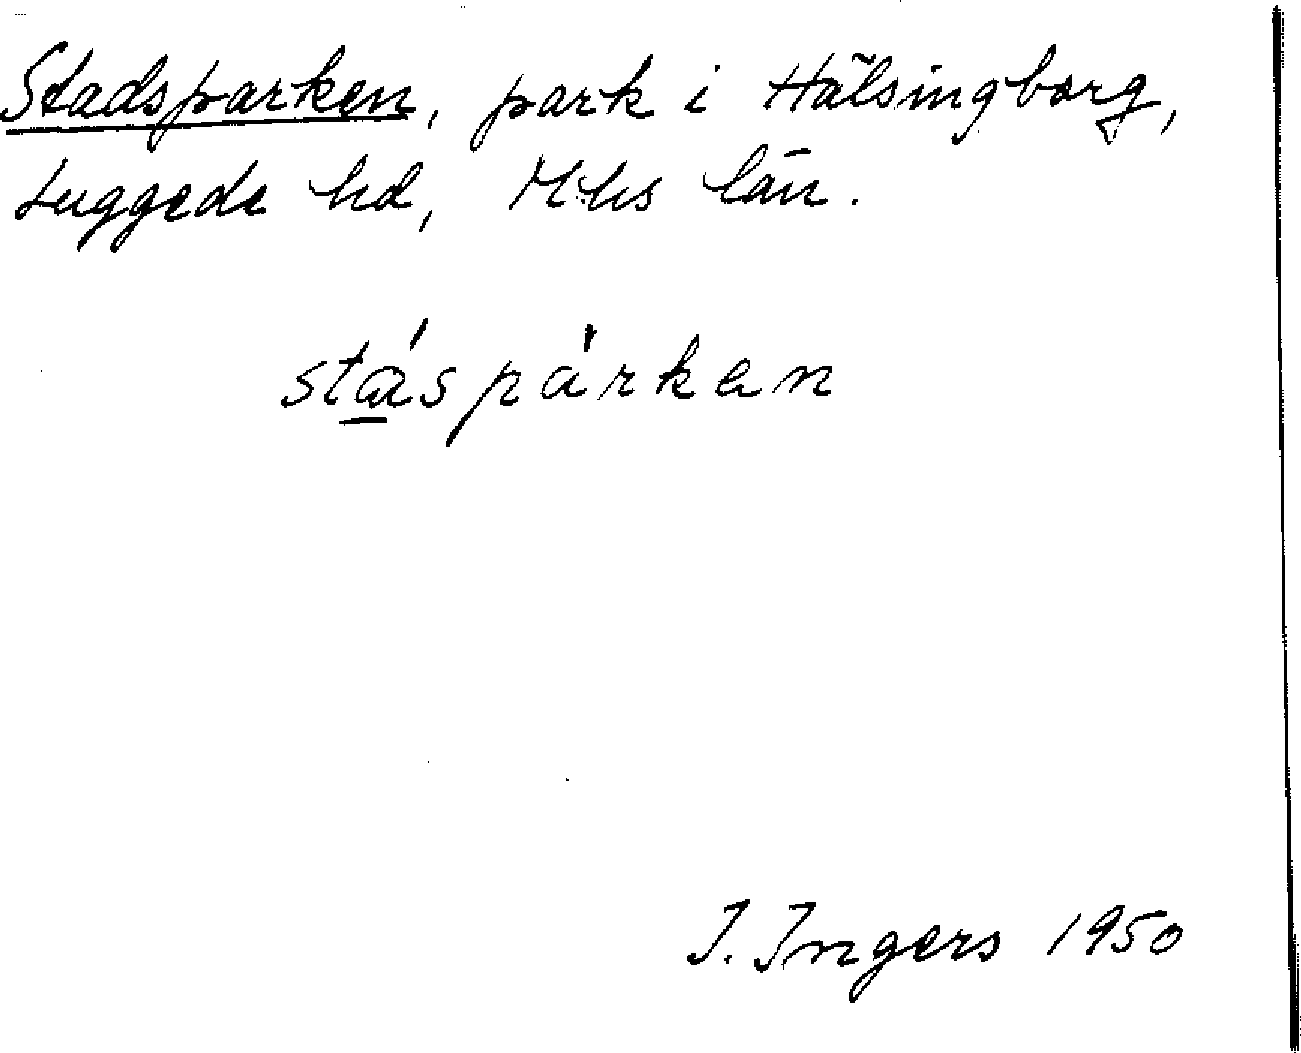 Stadsparken, park i Hälsingborg,
Luggede hd, Mhs län.
stáspárken
I. Ingers 1950